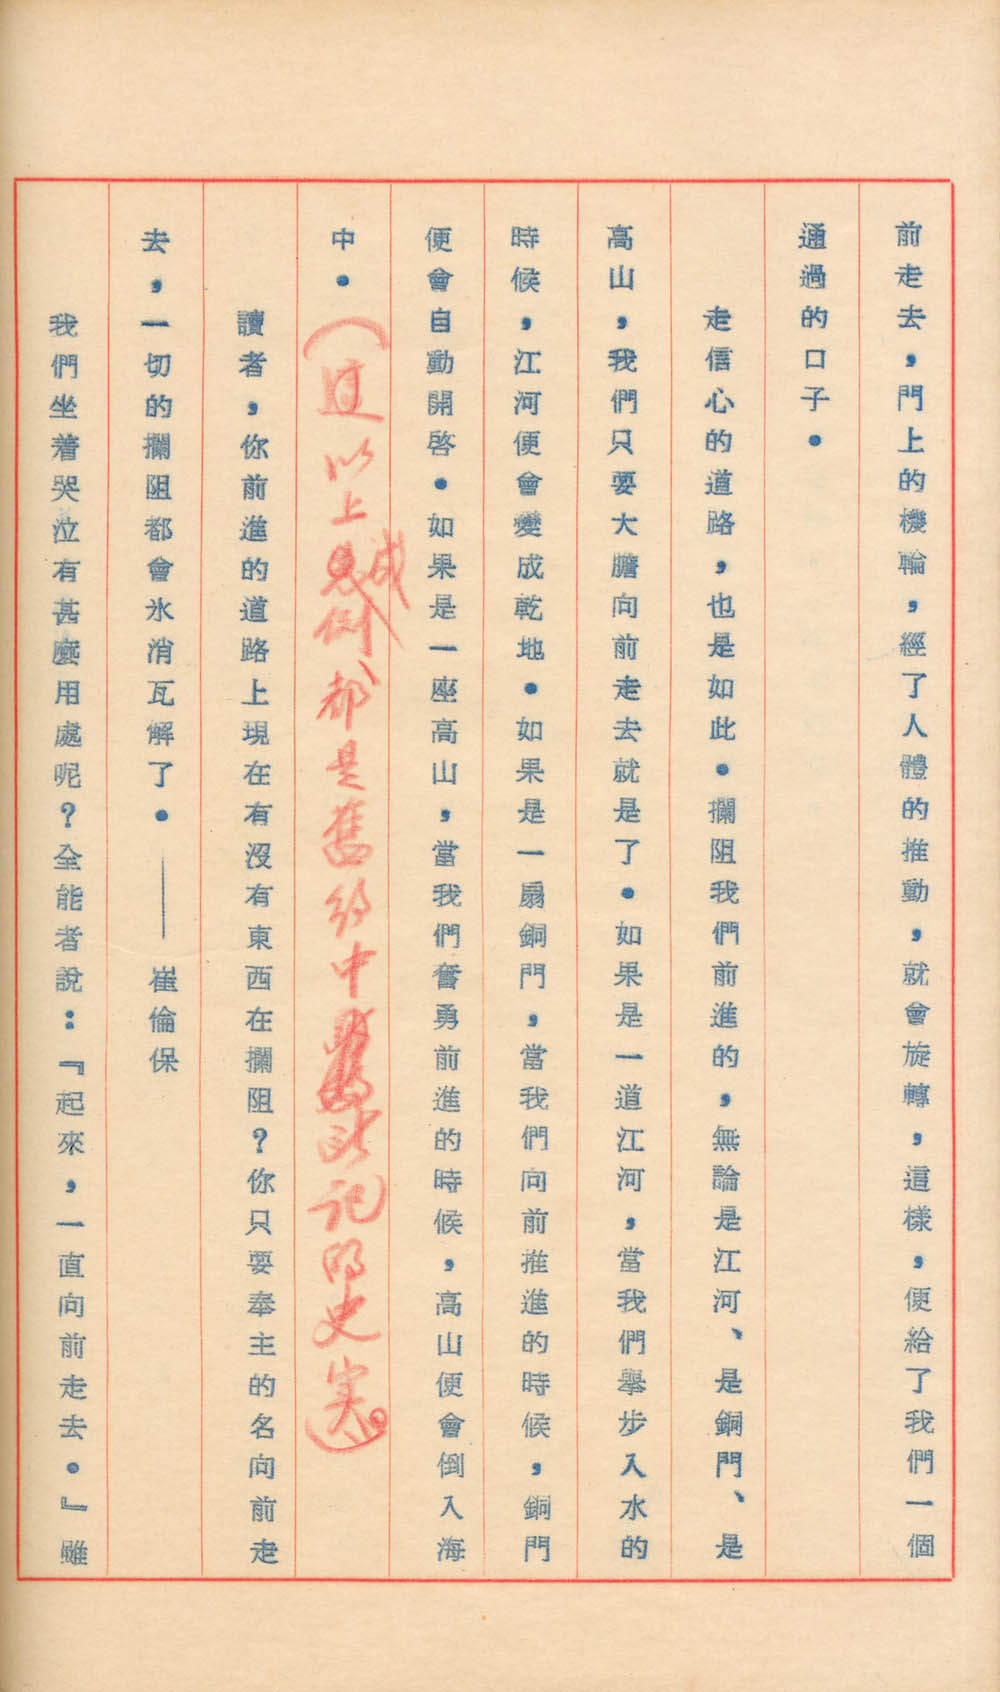 前走去，門上的機輪，經了人體的推動，就會旋轉，這樣，便給了我們一個
通過的口子。
走信心的道路，也是如此。攔阻我們前進的，無論是江河、是銅門、是
高山，我們只要大膽向前走去就是了。如果是一道江河，當我們舉步入水的
時候，江河便會變成乾地。如果是一扇銅門，當我們向前推進的時候，銅門
便會自動開啓。如果是一座高山，當我們奮勇前進的時候，高山便會倒入海
中。（這以上 都是舊約中 記的史実。）
讀者，你前進的道路上現在有沒有東西在攔阻？你只要奉主的名向前走
去，一切的攔阻都會氷消瓦解了。——崔倫保
我們坐着哭泣有甚麼用處呢？全能者說：『起來，一直向前走去。』雖